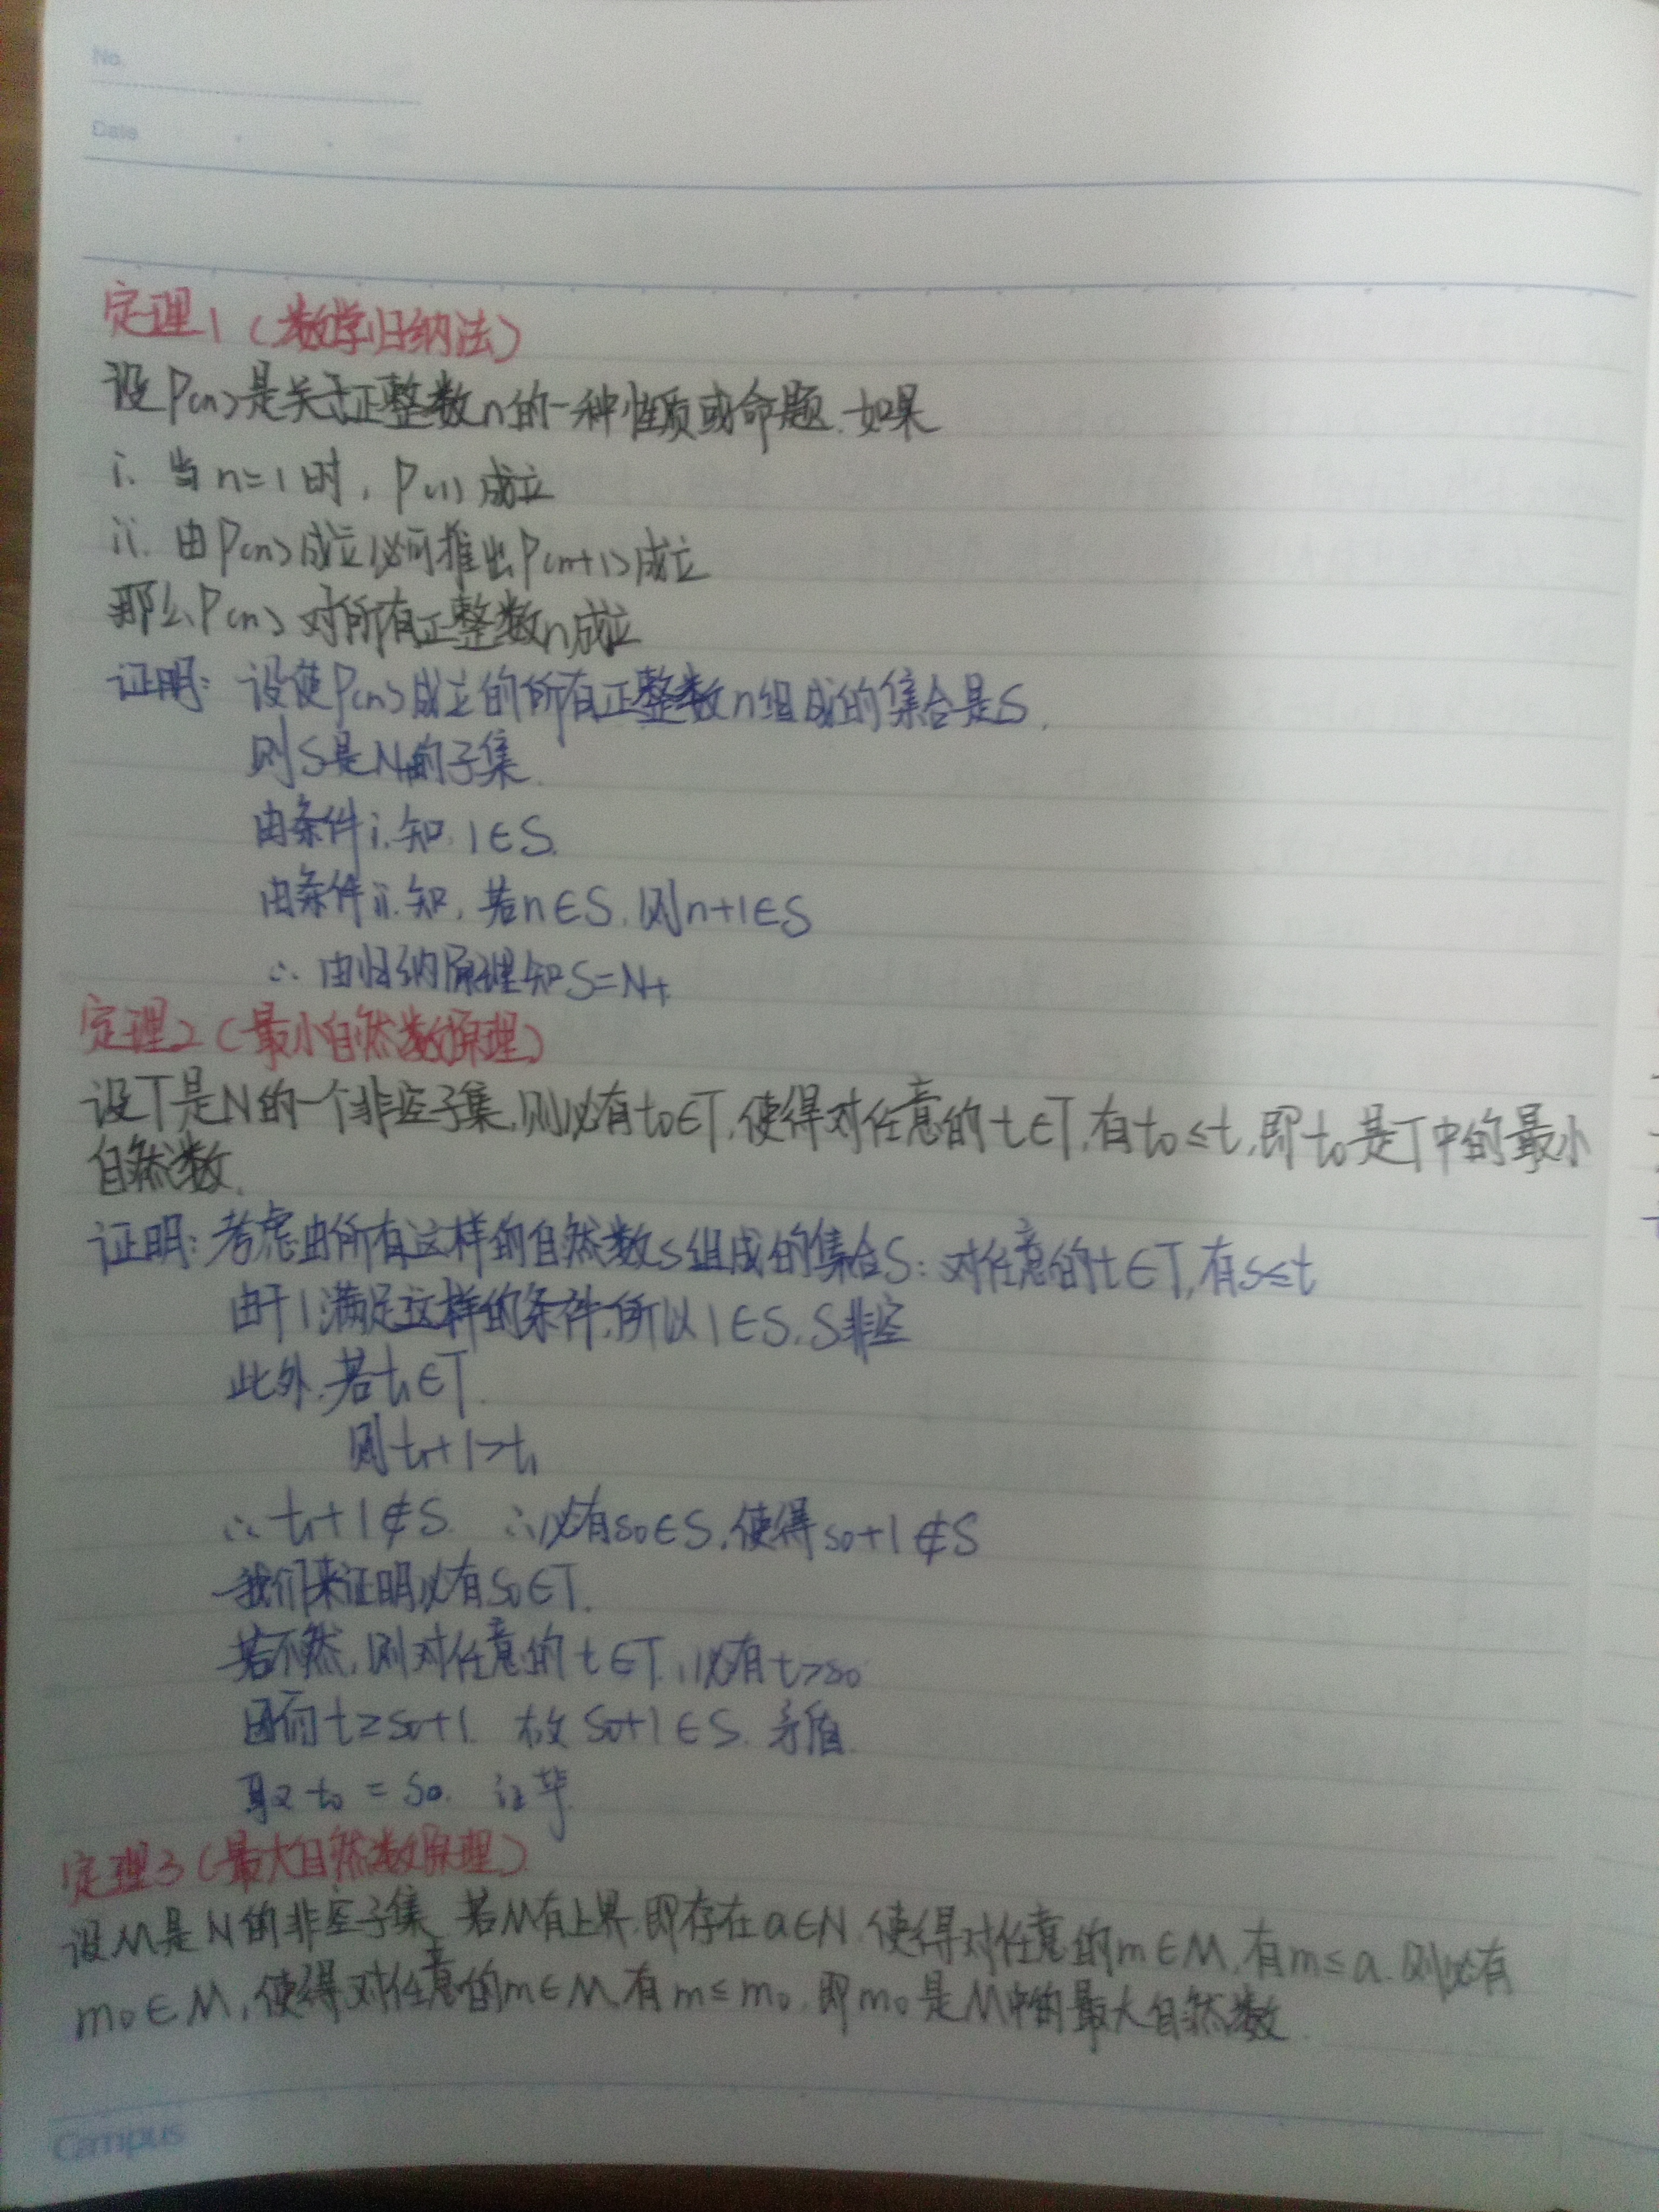 No.
Date
定理1（数学归纳法）
设P(n)是关于正整数n的一种性质或命题.如果
i. 当n=1时, P(1)成立
ii. 由P(n)成立必可推出P(n+1)成立
那么P(n)对所有正整数n成立
证明: 设使P(n)成立的所有正整数n组成的集合是S.
则S是N+的子集.
由条件i.知, 1∈S.
由条件ii.知, 若n∈S, 则n+1∈S
∴ 由归纳原理知S=N+
定理2（最小自然数原理）
设T是N的一个非空子集,则必有t₀∈T,使得对任意的t∈T,有t₀≤t,即t₀是T中的最小
自然数.
证明: 考虑由所有这样的自然数s组成的集合S: 对任意的t∈T,有s≤t
由于1满足这样的条件,所以1∈S, S非空
此外,若t₁∈T.
则t₁+1>t₁
∴ t₁+1∉S. ∴必有s₀∈S,使得s₀+1∉S
我们来证明必有s₀∈T.
若不然,则对任意的t∈T,必有t>s₀
因而t≥s₀+1. 故s₀+1∈S. 矛盾.
取t₀=s₀. 证毕.
定理3（最大自然数原理）
设M是N的非空子集.若M有上界,即存在a∈N,使得对任意的m∈M,有m≤a.则必有
m₀∈M,使得对任意的m∈M,有m≤m₀,即m₀是M中的最大自然数.
Campus